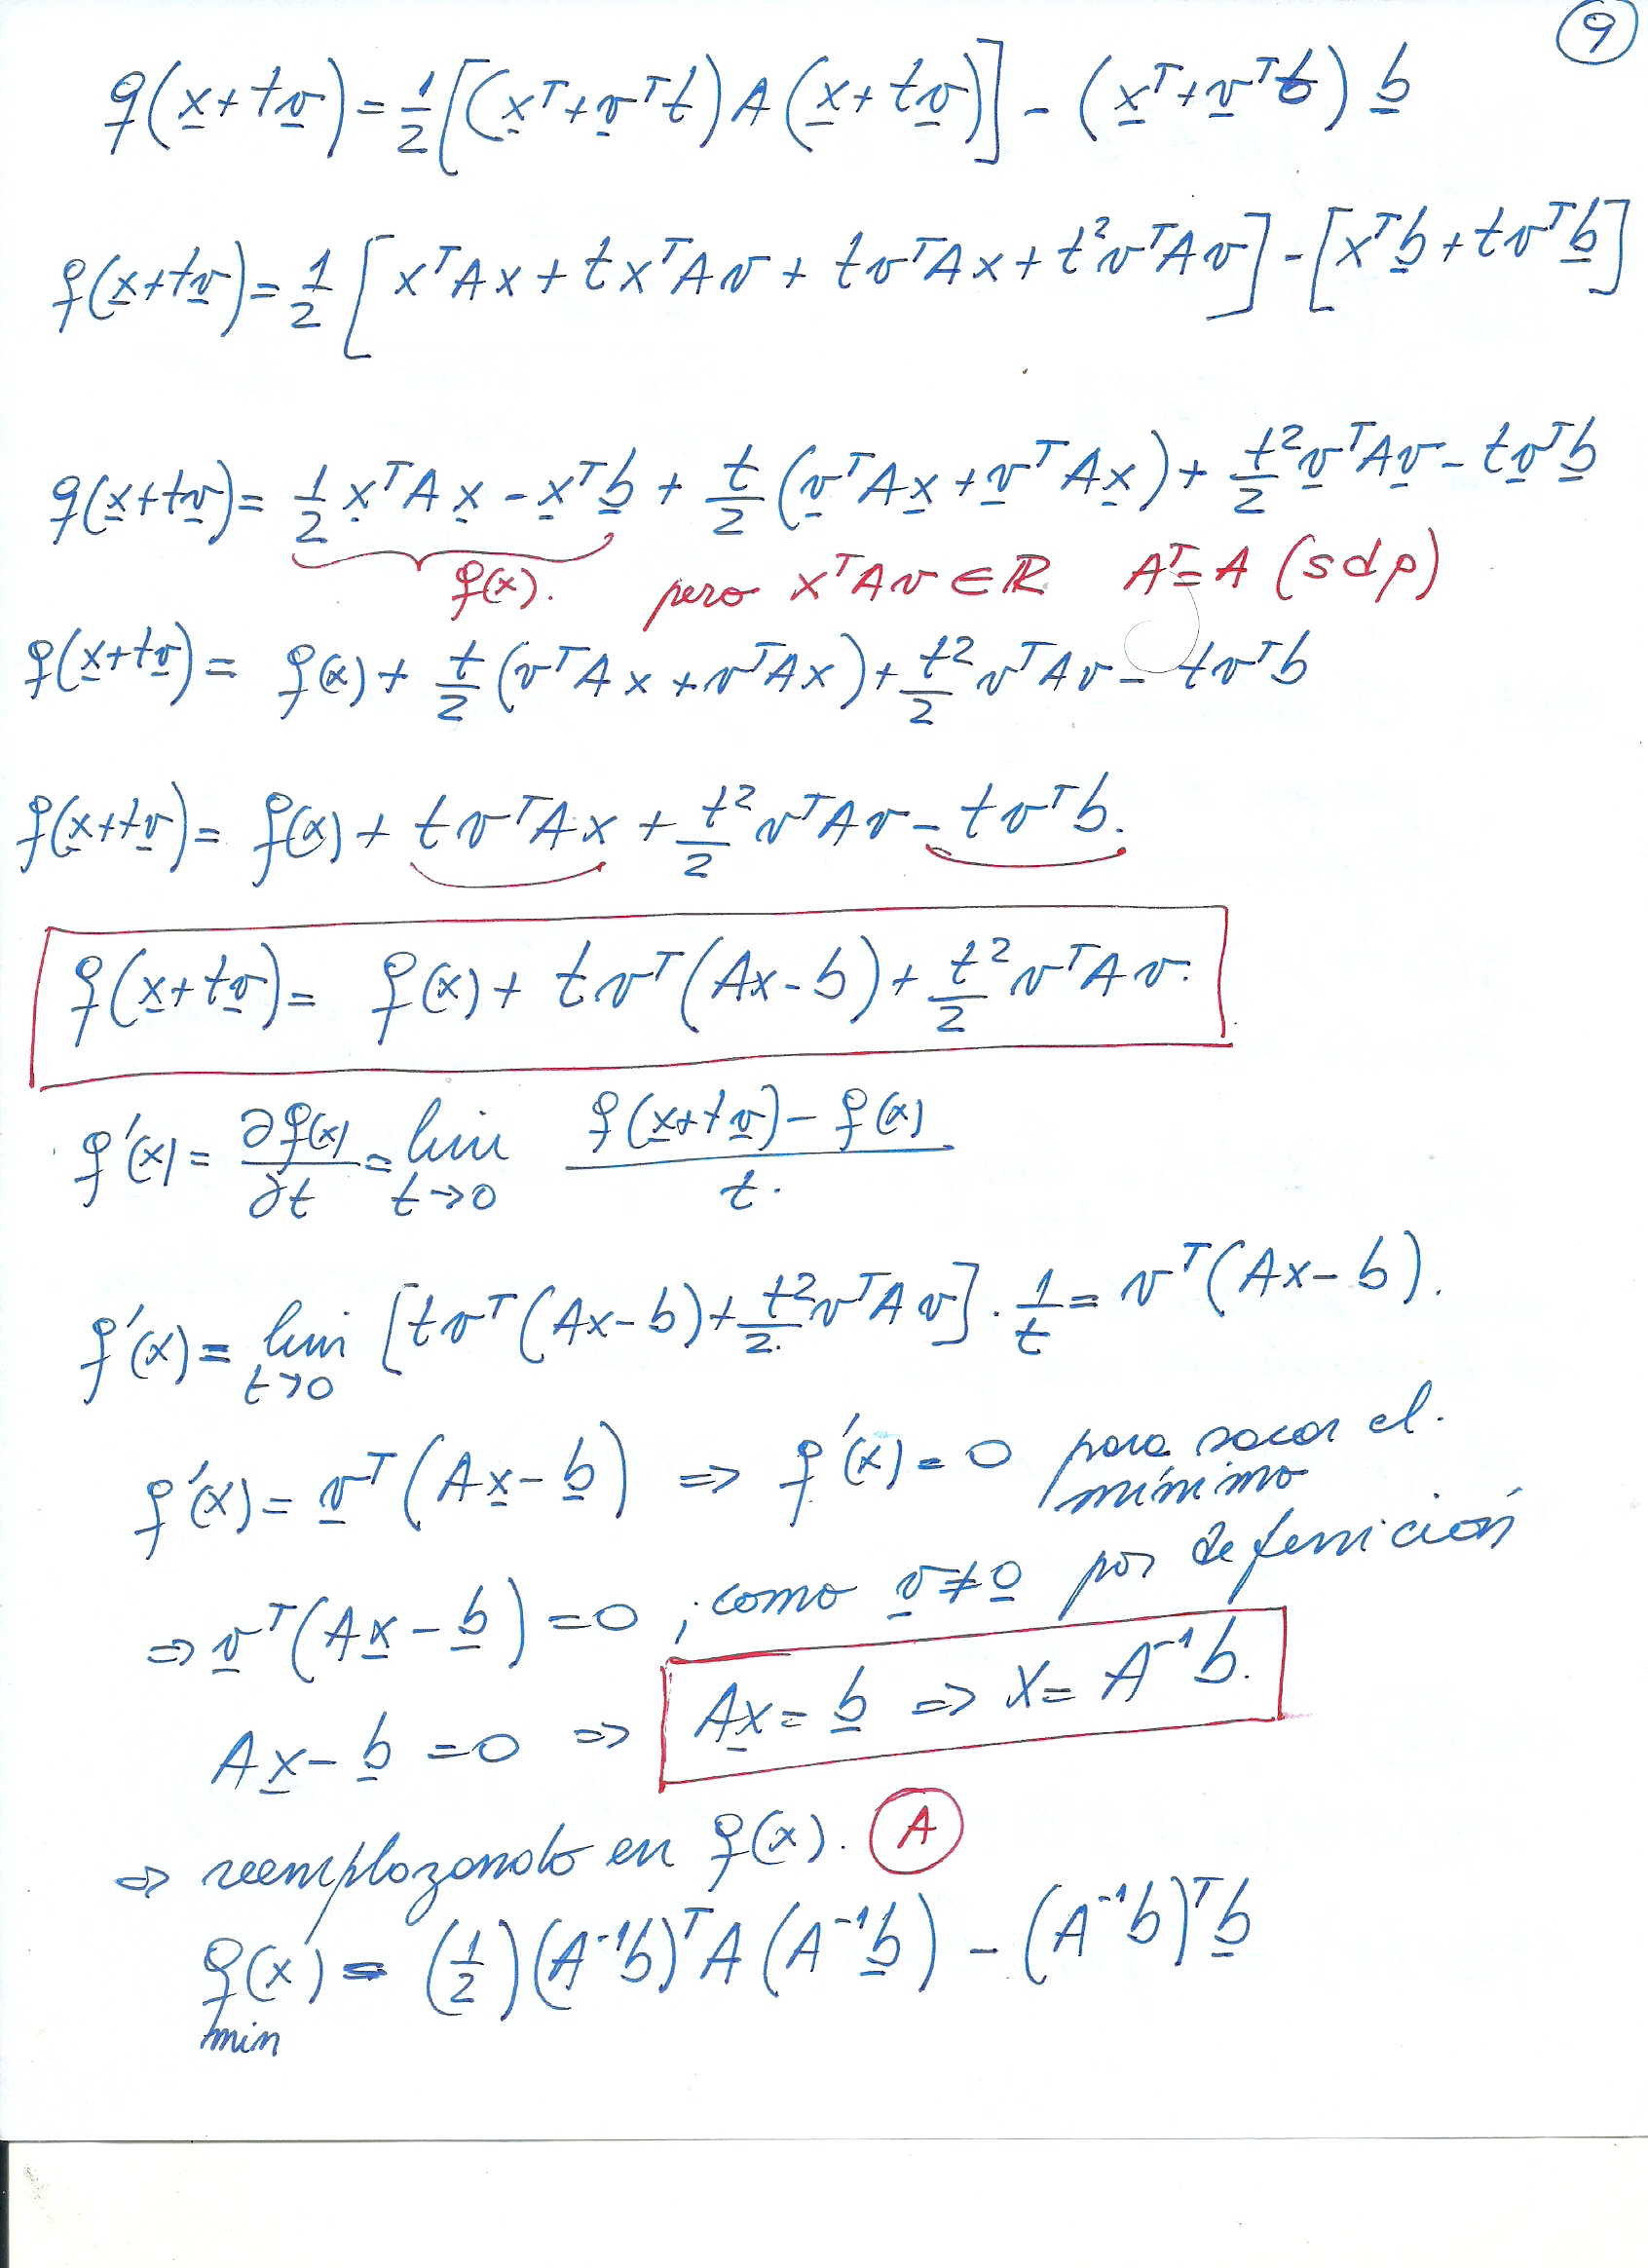 9
q(x+tv) = 1/2 [(xᵀ+vᵀt) A (x+tv)] - (xᵀ+vᵀt) b
q(x+tv) = 1/2 [xᵀAx + txᵀAv + tvᵀAx + t²vᵀAv] - [xᵀb + tvᵀb]
q(x+tv) = 1/2 xᵀAx - xᵀb + t/2 (vᵀAx + vᵀAx) + t²/2 vᵀAv - tvᵀb
q(x). pero xᵀAv ∈ ℝ Aᵀ=A (sdp)
q(x+tv) = q(x) + t/2 (vᵀAx + vᵀAx) + t²/2 vᵀAv - tvᵀb
q(x+tv) = q(x) + tvᵀAx + t²/2 vᵀAv - tvᵀb.
q(x+tv) = q(x) + tvᵀ(Ax-b) + t²/2 vᵀAv.
q'(x) = ∂q(x)/∂t = lim t→0 (q(x+tv) - q(x))/t.
q'(x) = lim t→0 [tvᵀ(Ax-b) + t²/2. vᵀAv] · 1/t = vᵀ(Ax-b).
q'(x) = vᵀ(Ax-b) ⇒ q'(x) = 0 para sacar el.
mínimo
⇒ vᵀ(Ax-b) = 0 ; como v≠0 por definición
Ax-b = 0 ⇒ Ax = b ⇒ X = A⁻¹b.
⇒ reemplazando en q(x). A
q(x) = (1/2)(A⁻¹b)ᵀA(A⁻¹b) - (A⁻¹b)ᵀb
min